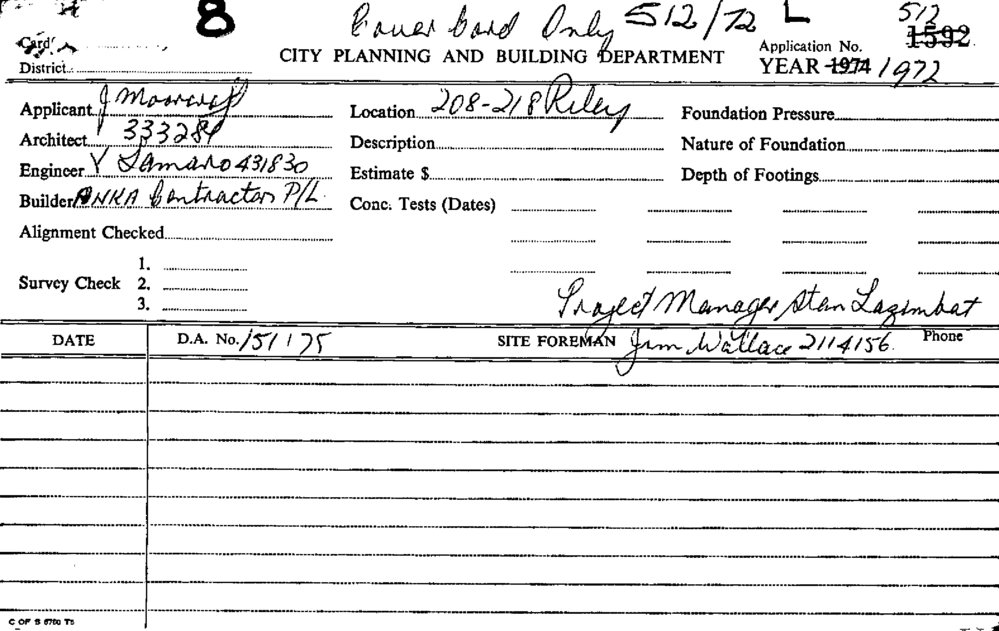 8 Cover Card Only 512/72 L 512
Card 1592
CITY PLANNING AND BUILDING DEPARTMENT Application No.
District YEAR 1974 1972
Applicant J Moorcroft Location 208-218 Riley Foundation Pressure
Architect 333284 Description Nature of Foundation
Engineer Y Samaro 431830 Estimate $ Depth of Footings
Builder ANKA Contractors P/L. Conc. Tests (Dates)
Alignment Checked
1.
Survey Check 2.
3.
Project Manager Stan Lazimbat
DATE D.A. No. 151175 SITE FOREMAN Jim Wallace 2114156. Phone
C OF S